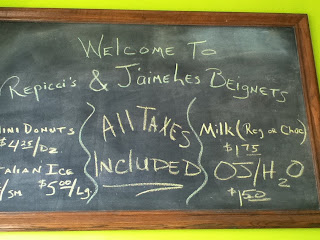 WELCOME TO
REPICCI'S & J'AIMELLES BEIGNETS
MINI DONUTS
$4.25/DZ
ITALIAN ICE
/SM $5.00/Lg.
All TAXES
INCLUDED
MILK (REG OR CHOC)
$1.75
OJ/H2O
$1.50